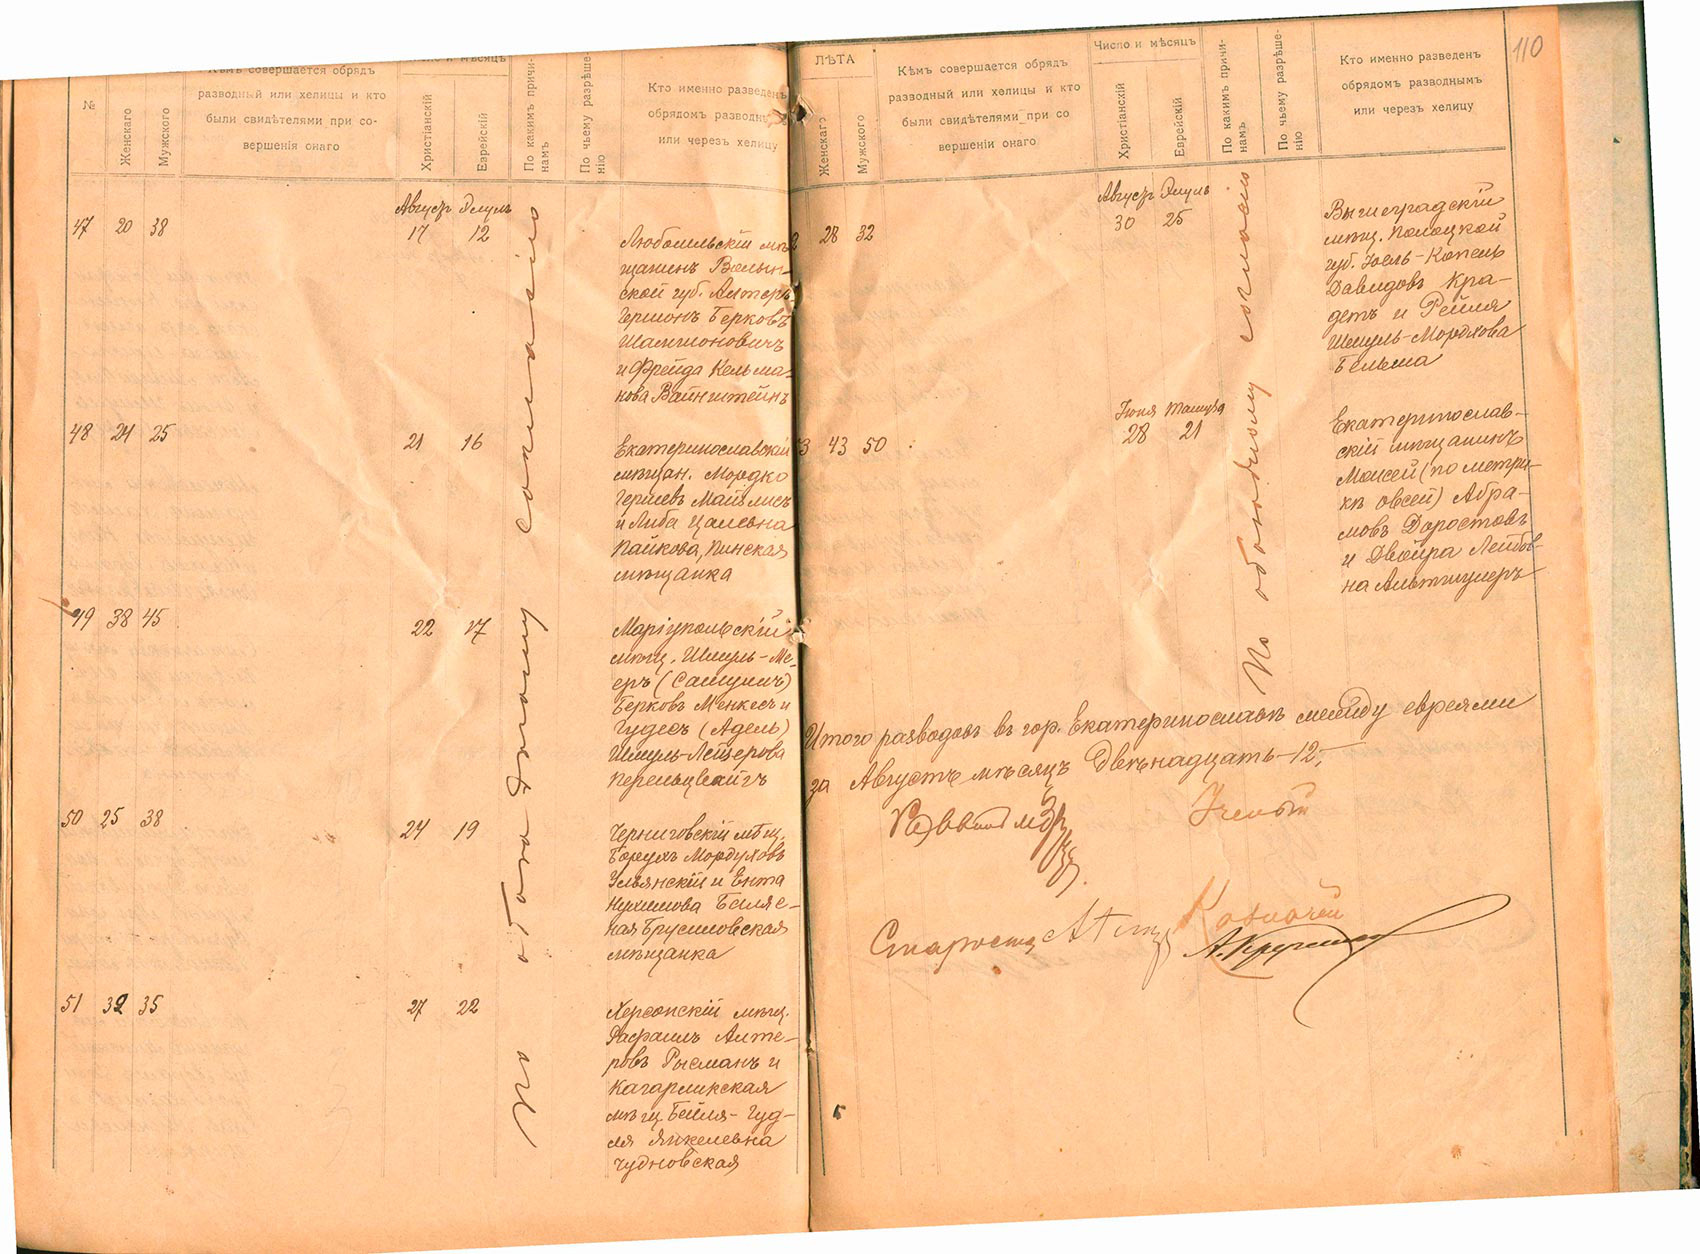 №
Женскаго
Мужского
Кѣмъ совершается обрядъ
разводный или хелицы и кто
были свидѣтелями при со-
вершенія онаго
Число и мѣсяцъ
Христіанскій
Еврейскій
По какимъ причи-
намъ
По чьему разрѣше-
нію
Кто именно разведенъ
обрядомъ разводнымъ
или черезъ хелицу
47 20 38
Августъ Элулъ
17 12
Любомльскій мѣ-
щанинъ Волын-
ской губ. Алтеръ
Гершонъ Берковъ
Шамшоновичъ
и Фрейда Кельма-
нова Вайнштейнъ
48 24 25
21 16
Екатеринославскій
мѣщан. Мордко
Гершевъ Майзлисъ
и Либа Цалевна
Пайкова, Пинская
мѣщанка
49 38 45
22 17
Маріупольскій
мѣщ. Шмуль-Ме-
еръ (Самуилъ)
Берковъ Менкесъ и
Гудесъ (Адель)
Шмуль-Лейзерова
Перельцвайгъ
50 25 38
24 19
Черниговскій мѣщ.
Борухъ Мордуховъ
Ульянскій и Ента
Нухимова Баляс-
ная Брусиловская
мѣщанка
51 32 35
27 22
Херсонскій мѣщ.
Рафаилъ Алте-
ровъ Рысманъ и
Кагарликская
мѣщ. Бейля-Гуд-
ля Янкелевна
Чудновская
По обоюдному согласію
110
ЛѢТА
Женскаго
Мужского
Кѣмъ совершается обрядъ
разводный или хелицы и кто
были свидѣтелями при со
вершеніи онаго
Число и мѣсяцъ
Христіанскій
Еврейскій
По какимъ причи-
намъ
По чьему разрѣше-
нію
Кто именно разведенъ
обрядомъ разводнымъ
или черезъ хелицу
2 28 32
Августъ Элулъ
30 25
Вышеградскій
мѣщ. Полоцкой
губ. Іоель-Копель
Давидовъ Кра-
детъ и Рейля
Шмуль-Мордхова
Бельма
53 43 50
Іюня Тамуза
28 21
Екатеринослав-
скій мѣщанинъ
Моисей (по метри-
кѣ Овсей) Абра-
мовъ Доростовъ
и Двойра Лейбов-
на Альтшулеръ
По обоюдному согласію
Итого разводовъ въ гор. Екатеринославѣ между евреями
за Августъ мѣсяцъ Двѣнадцать-12,-
Раввинъ
Ученый
Староста
Казначей